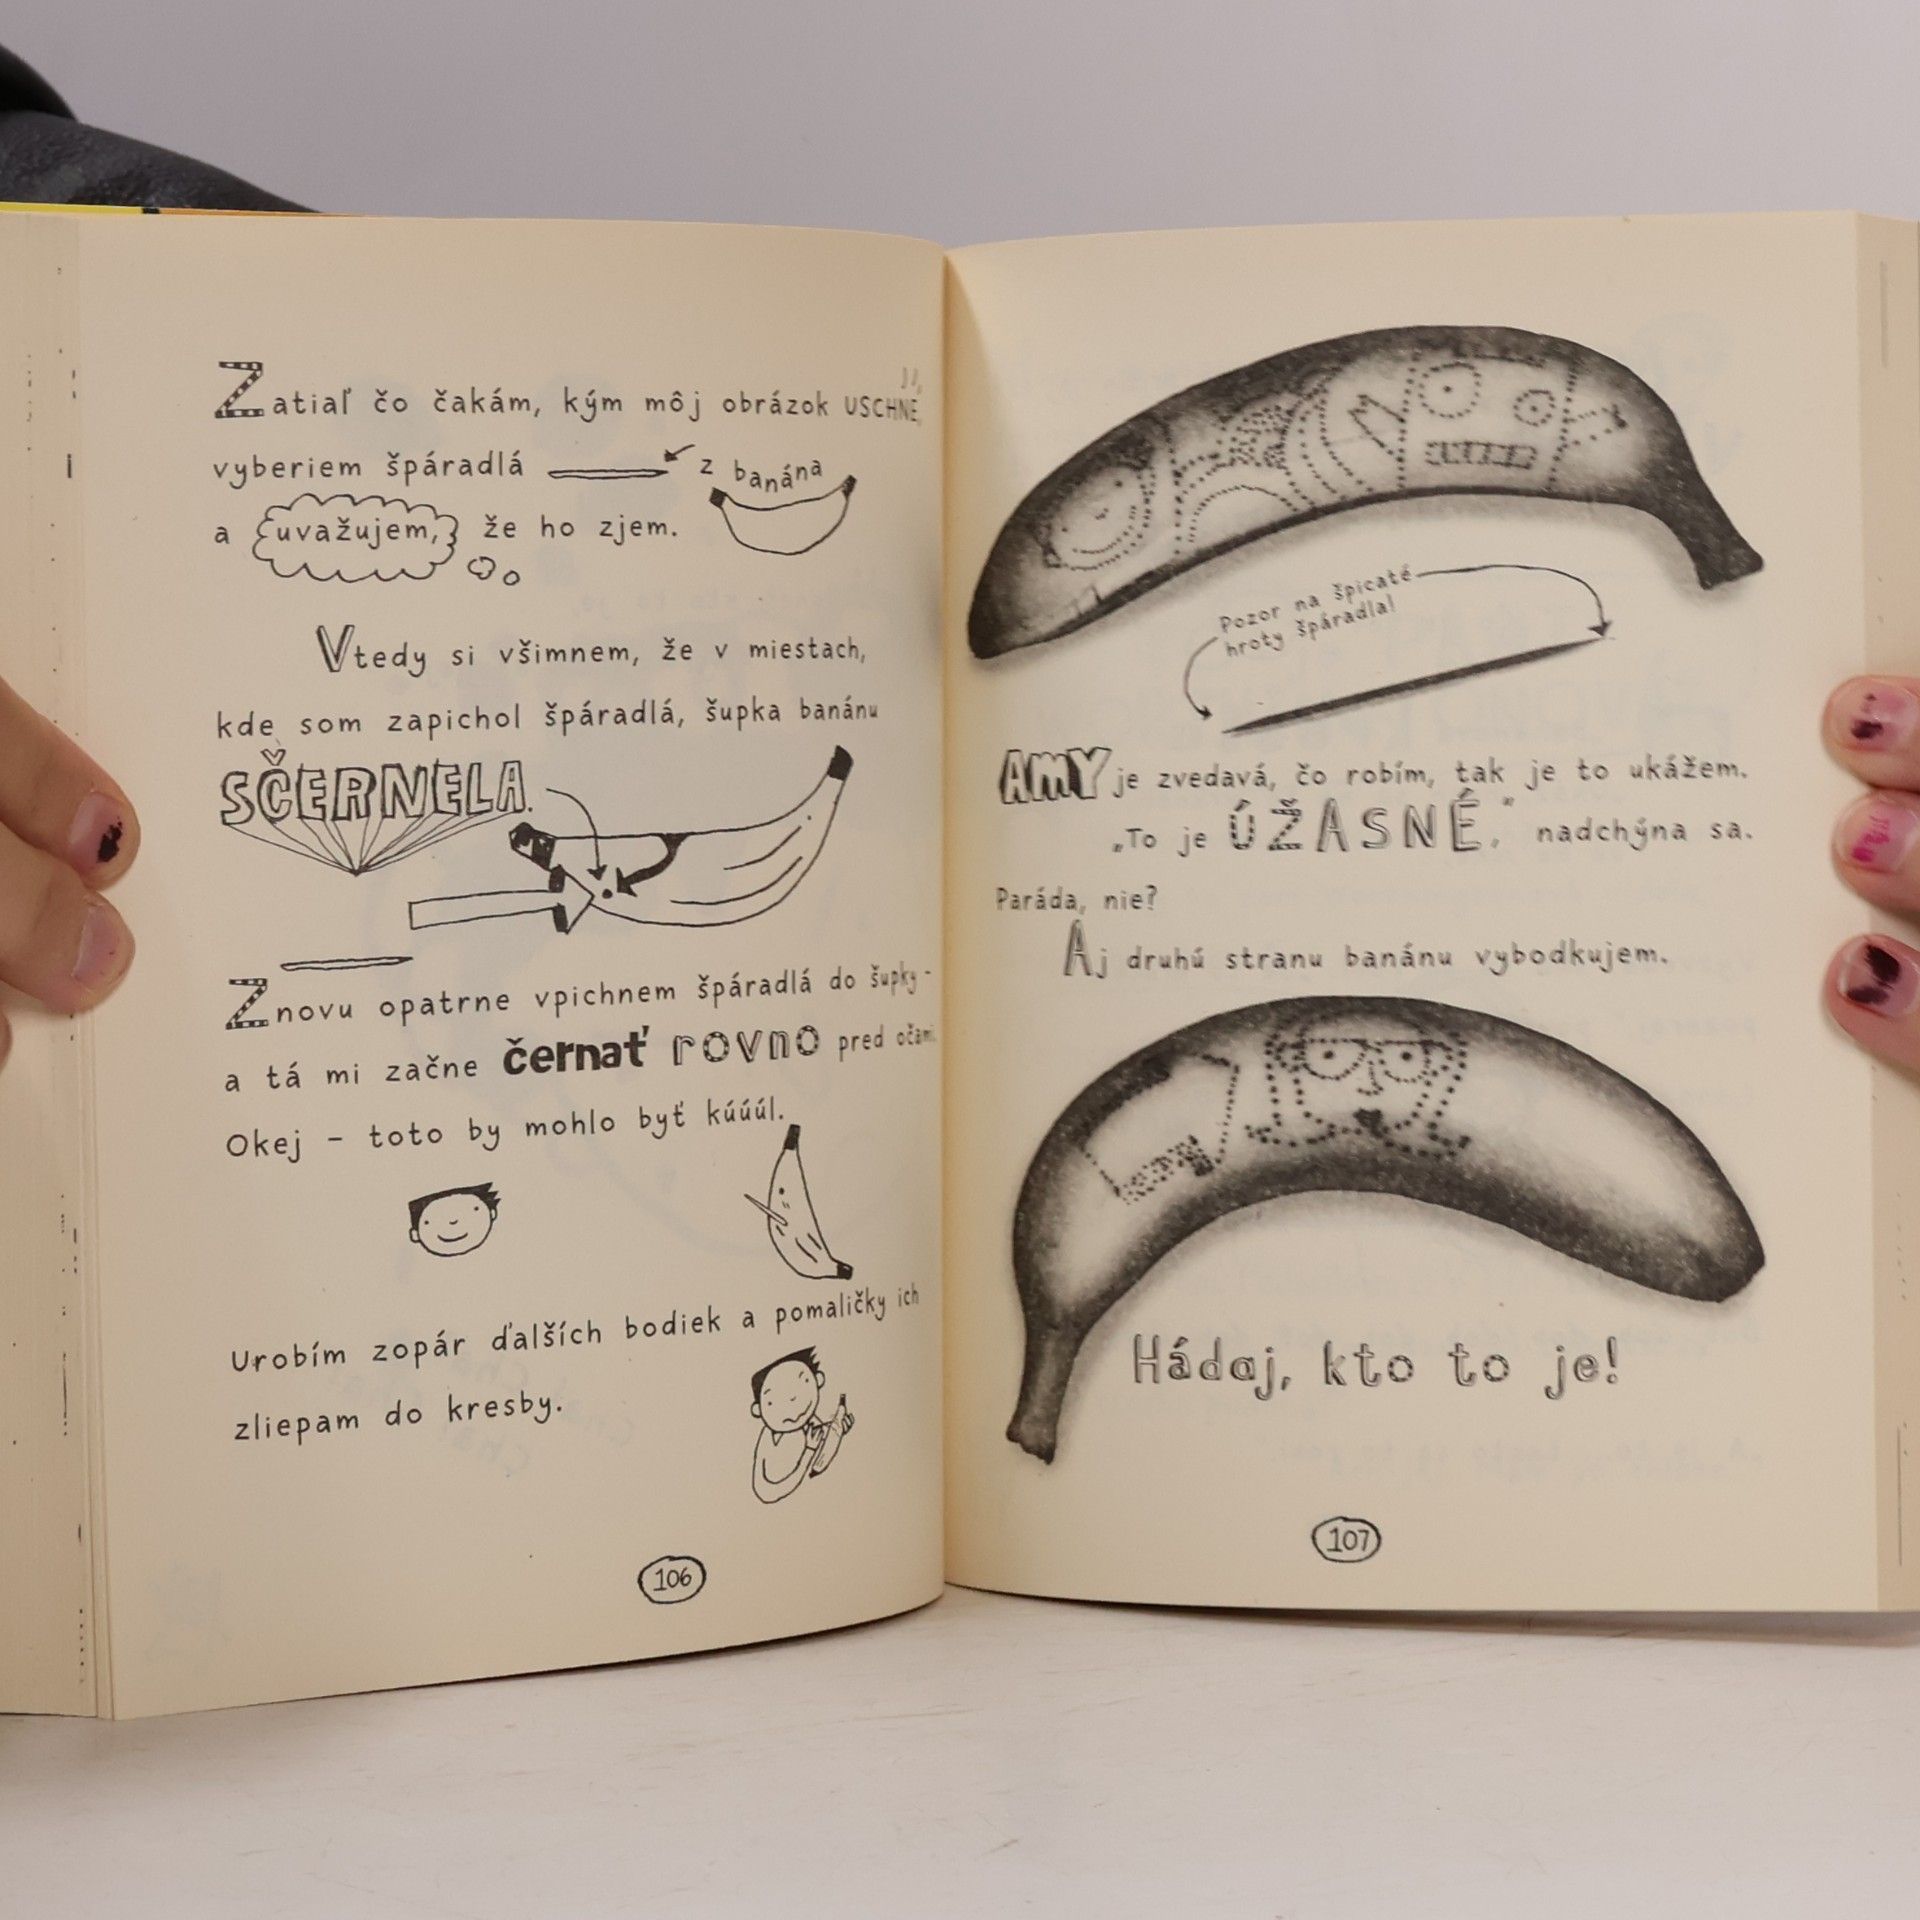 Zatiaľ čo čakám, kým môj obrázok USCHNE,
vyberiem špáradlá z banána
a uvažujem, že ho zjem.
Vtedy si všimnem, že v miestach,
kde som zapichol špáradlá, šupka banánu
SČERNELA.
Znovu opatrne vpichnem špáradlá do šupky -
a tá mi začne černať rovno pred očami.
Okej – toto by mohlo byť kúúúl.
Urobím zopár ďalších bodiek a pomaličky ich
zliepam do kresby.
106
Pozor na špicaté
hroty špáradla!
AMY je zvedavá, čo robím, tak je to ukážem.
„To je ÚŽASNÉ,” nadchýna sa.
Paráda, nie?
Aj druhú stranu banánu vybodkujem.
Hádaj, kto to je!
107